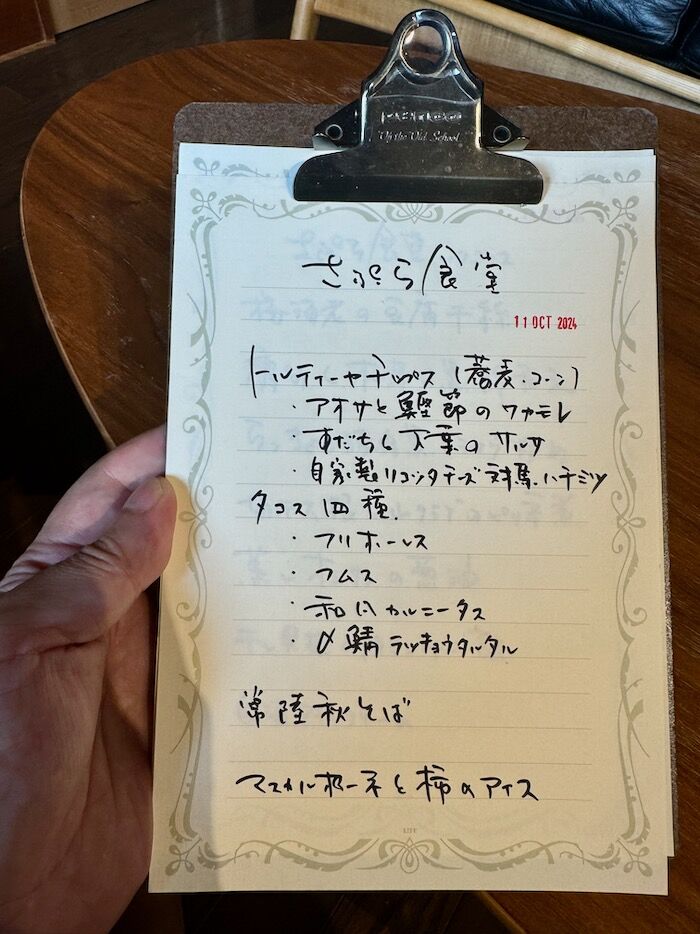 PENCO
"Of the Old School"
さぷら食堂
11 OCT 2024
トルティーヤチップス (蕎麦・コーン)
・アオサと鰹節のワカモレ
・すだちと大葉のサルサ
・自家製リコッタチーズ 対馬ハチミツ
タコス四種.
・フリホーレス
・フムス
・和風カルニータス
・〆鯖ラッキョウタルタル
常陸秋そば
マスカルポーネと柿のアイス
LIFE